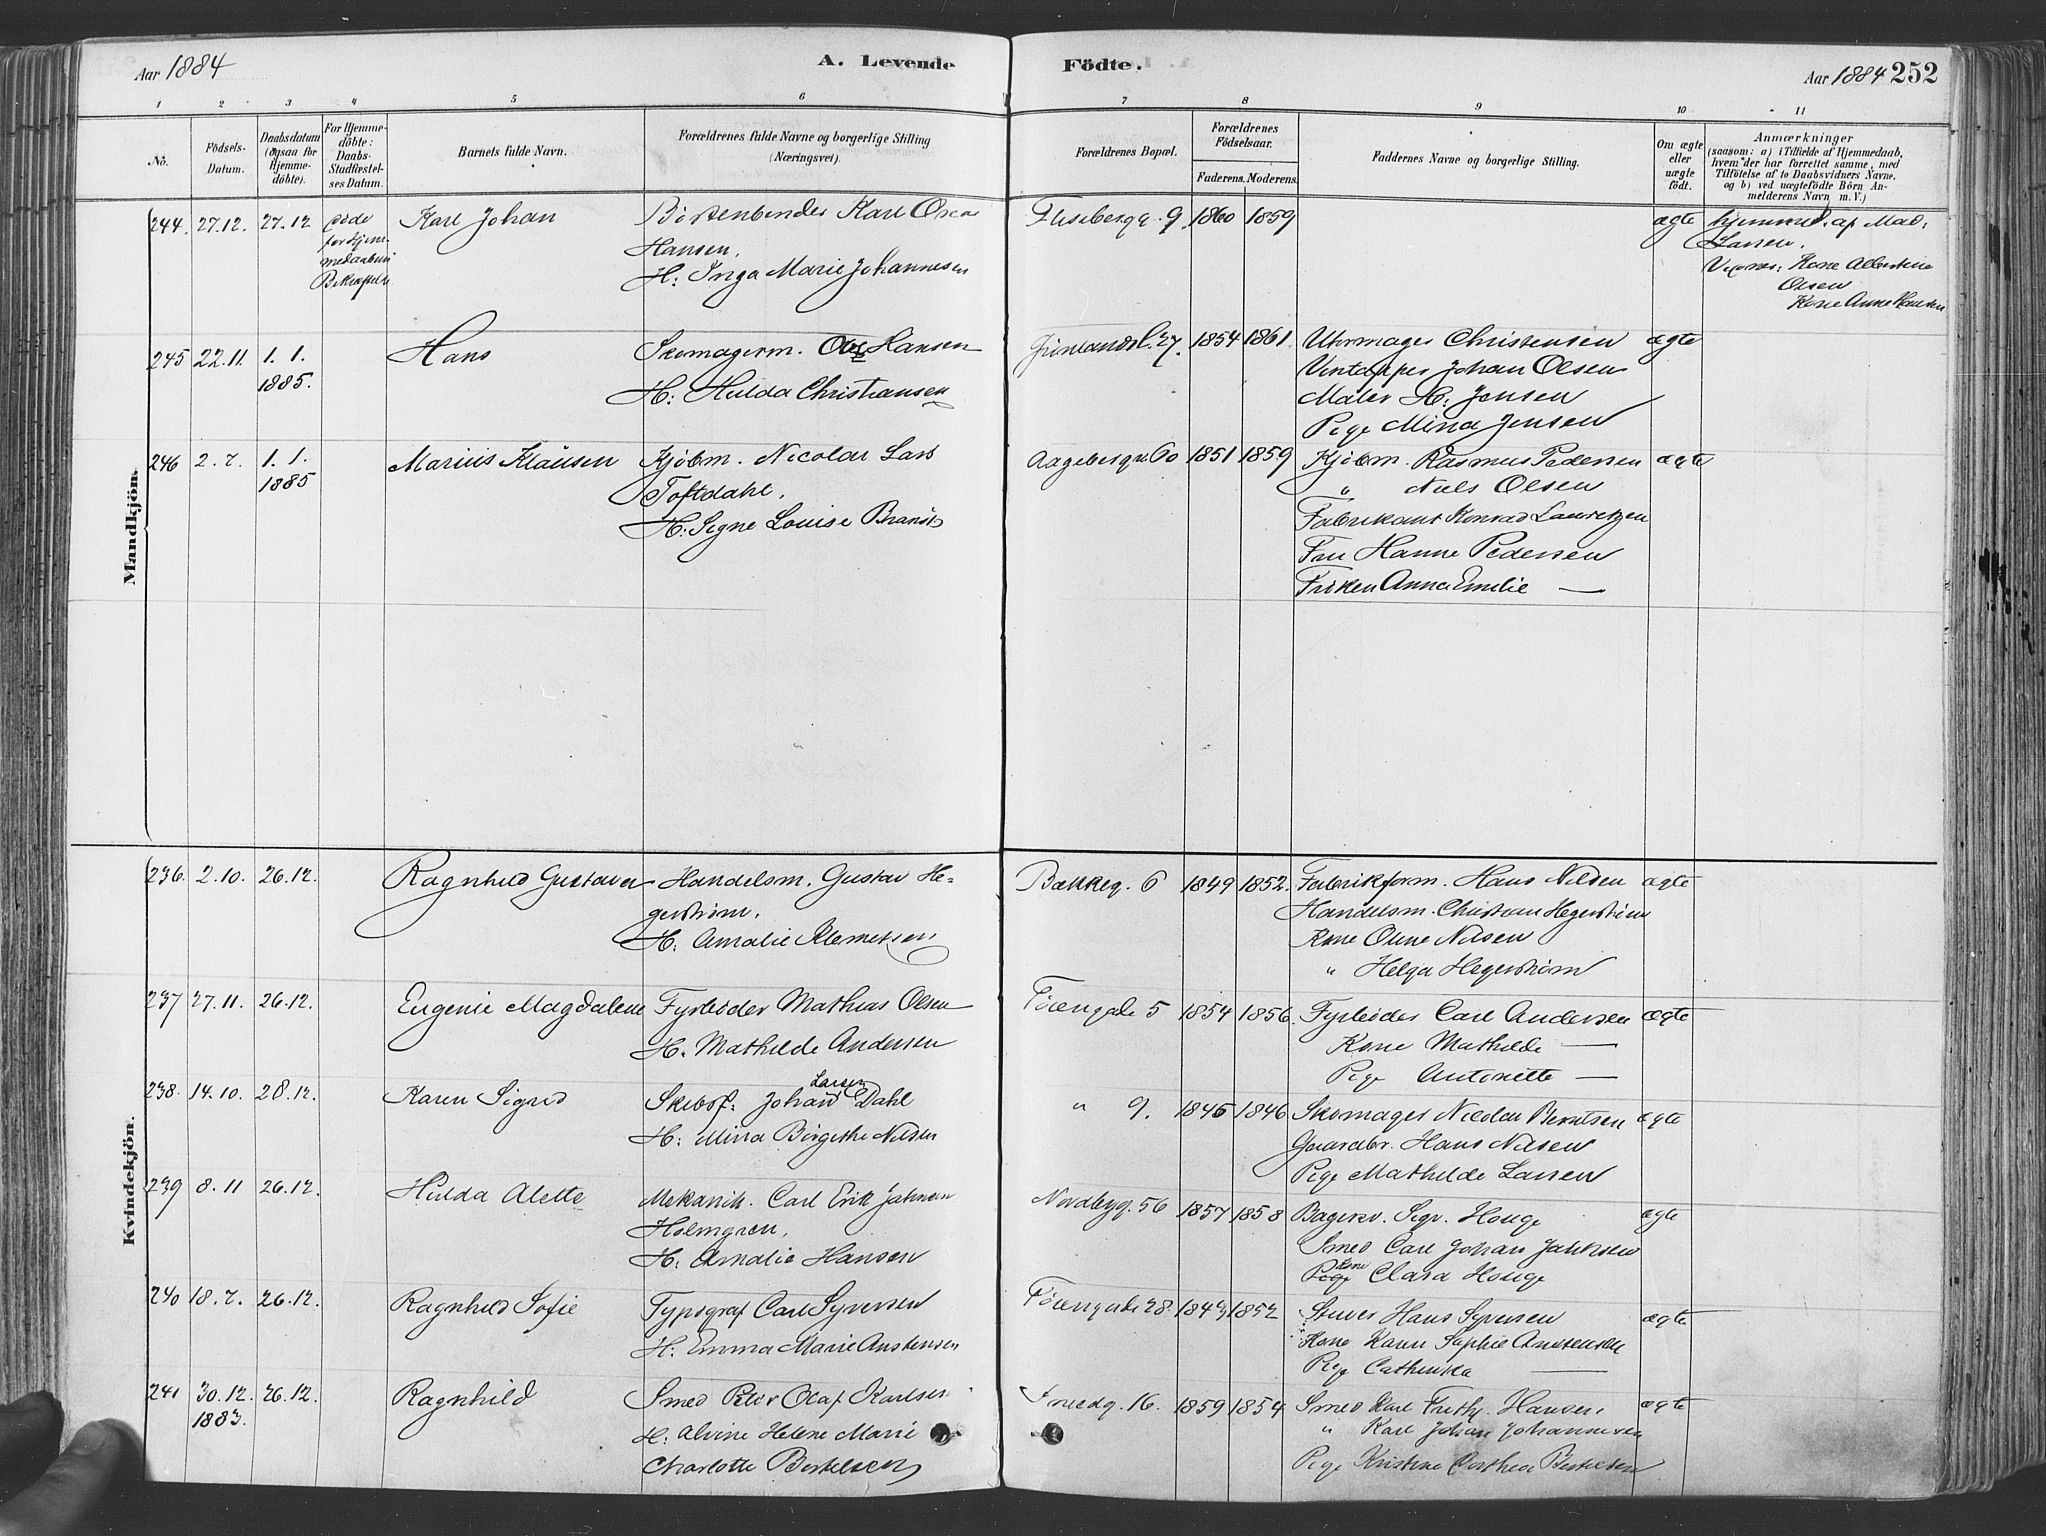 Aar 1884
A. Levende
Födte.
Aar 1884 252
1 2 3 4 5 6 7 8 9 10 11
No.
Födsels-Datum.
Daabsdatum (ogsaa for Hjemme-döbte).
For Hjemme-döbte: Daabs-Stadfæstel-ses Datum.
Barnets fulde Navn.
Forældrenes fulde Navne og borgerlige Stilling
(Næringsvei).
Forældrenes Bopæl.
Forældrenes Födselsaar.
Faderens. Moderens.
Faddernes Navne og borgerlige Stilling.
Om ægte eller uægte födt.
Anmærkninger
(saasom: a) i Tilfælde af Hjemmedaab,
hvem der har forrettet samme, med
Tilföielse af to Daabsvidners Navne.
og b) ved uægtefödte Börn An-
melderens Navn m. V.)
Mandkjön.
244. 27.12. 27.12 døde før Hjem- medaabens Bekræftelse Karl Johan
Børstenbinder Karl Oscar
Hansen.
H: Inga Marie Johannesen
9. 1860 1859 ægte
hjemmed. af Mad.
Larsen.
Vidner: Kone Albertine
Olsen
Kone Anne Hansen
245 22.11. 1.1. 1885. Hans
Skomagerm. Hansen
H: Hulda Christiansen
Grønlandsl. 27. 1854 1861.
Uhrmager Christensen ægte
Vintapper Johan Olsen
Maler H. Jensen
Pige Mina Jensen
246 2.7. 1.1. 1885 Marius Klausen
Kjøbm. Nicolai Lars
Toftdahl.
H: Signe Louise Brandt
Aagebergv. 60 1851 1859
Kjøbm. Rasmus Pedersen ægte
" Niels Olsen
Fabrikant Konrad Lauretzen
Fru Hanne Pedersen
Frøken Anna Emilie —
Kvindekjön.
236. 2.10. 26.12. Ragnhild Gustava
Handelsm. Gustav He-
gerstrøm.
H. Amalie Klemetsen
Bakkeg. 6 1849 1852.
Fabrikform. Hans Nilsen ægte
Handelsm. Christian Hegerstrøm
Kone Oline Nilsen
" Helga Hegerstrøm
237 27.11. 26.12. Eugenie Magdalene
Fyrbøder Mathias Olsen
H. Mathilde Andersen
Tøiengade 5 1854 1856.
Fyrbøder Carl Andersen ægte
Kone Mathilde —
Pige Antonette —
238. 14.10. 28.12. Karen Sigrid
Skibsf. Johan Larsen Dahl
H: Mina Birgethe Nilsen
" 9. 1845 1846
Skomager Nicolai Berntsen ægte
Gaardbr. Hans Nilsen
Pige Mathilde Larsen
239 8.11 26.12. Hulda Alette
Mekanik. Carl Erik
Holmgren.
H: Amalie Hansen
Nordbyg. 56 1857 1858
Bagersv. Sigv. Houge ægte
Smed Carl Johan
Pige Kone Clara Houge
240 18.7. 26.12. Ragnhild Sofie
Typograf Carl Syversen
H: Emma Marie Anstensen
Tøiengade 28. 1843 1852
Stuver Hans Syversen ægte
Kone Karen Sophie Anstensen
Pige Cathinka —
241 30.12. 1883. 26.12. Ragnhild
Smed Peter Olaf Karlsen
H: Alvine Helene Marie
Charlotte Bertelsen
Smedg. 16. 1859 1854
Smed Karl Frithj. Hansen ægte
" Karl Johan Johannesen
Pige Kristine Dorthea Bertelsen